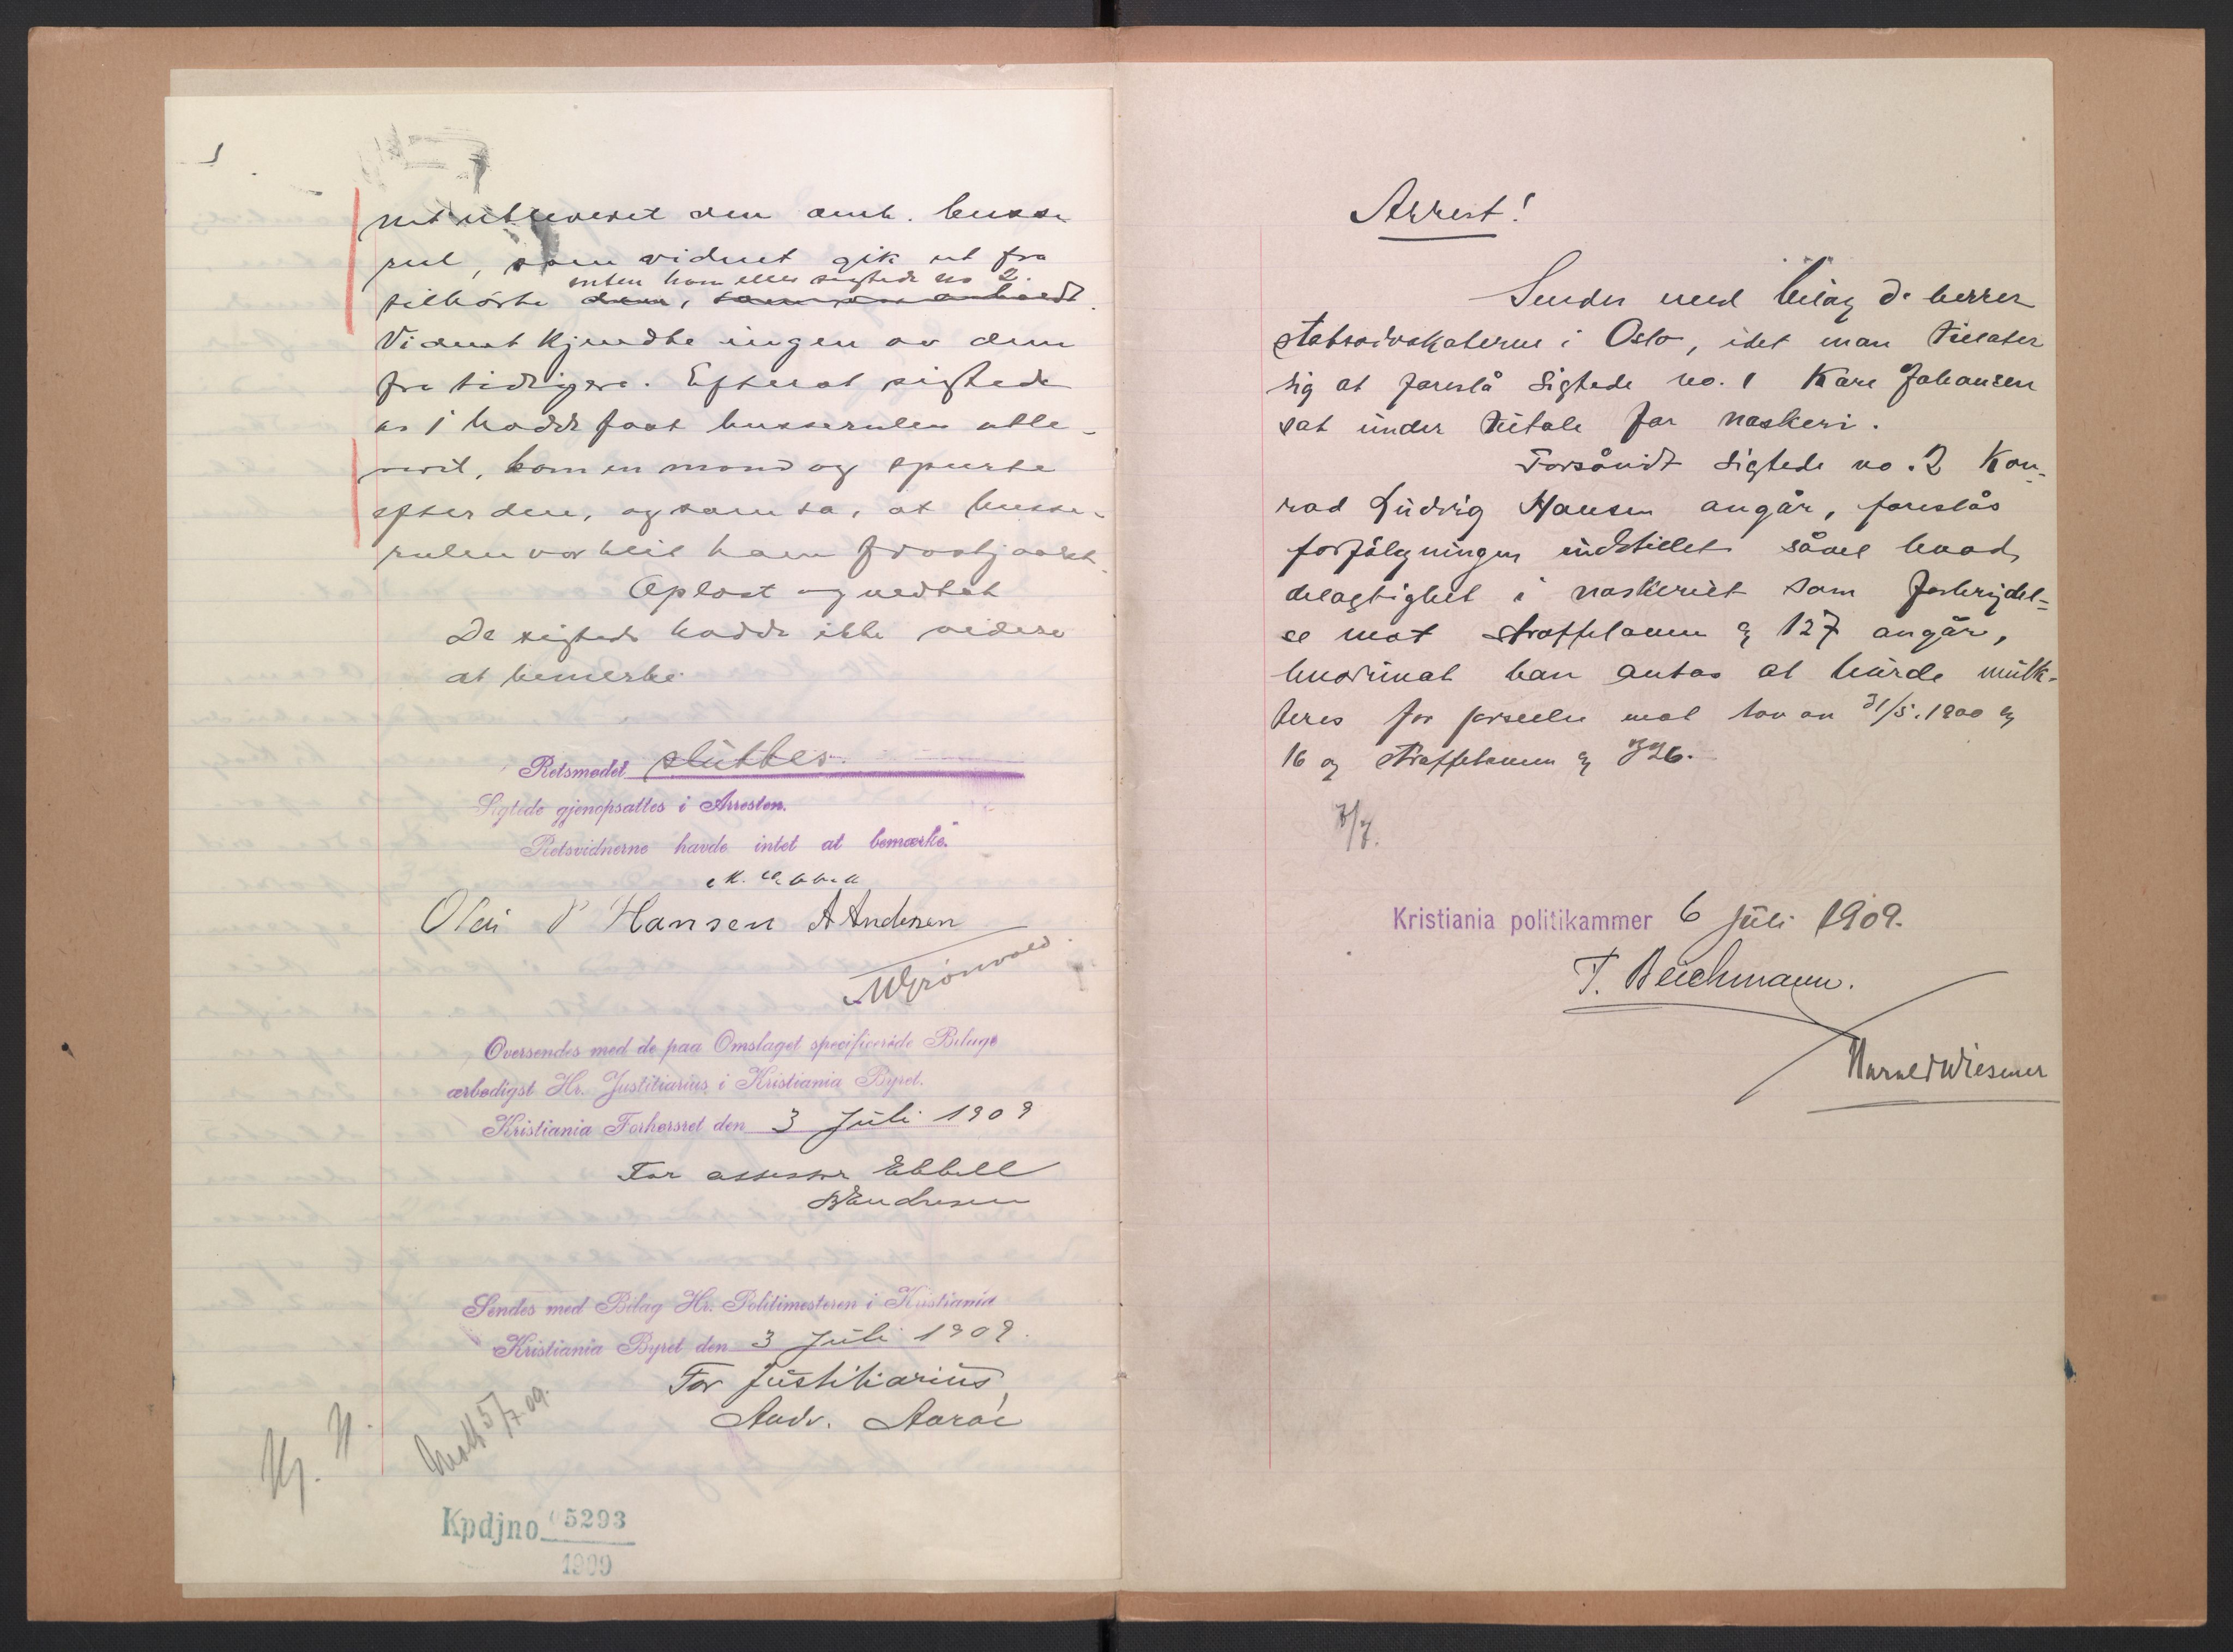 net utleveret den omh. busse
rul, som vidnet gik ut fra
enten ham eller sigtede no 2.
tilhörte dem, som
Vidnet kjendte ingen av dem
fra tidligere. Efterat sigtede
no 1 hadde faat busserulen utle-
veret, kom en mand og spurte
efter den, og som sa, at busse-
rulen var blit ham frastjaalet.
Oplæst og vedtat
De sigtede hadde ikke videre
at bemerke.
Retsmødet sluttes.
Sigtede gjenopsattes i Arresten.
Retsvidnerne havde intet at bemærke.
Olai P Hansen A Andersen
MGrönvold
Oversendes med de paa Omslaget specificerede Bilage
ærbødigst Hr. Justitiarius i Kristiania Byret.
Kristiania Forhørsret den 3 Juli 1909
For assessor Ebbell
Sendes med Bilag Hr. Politimesteren i Kristiania
Kristiania Byret den 3 Juli 1909.
For Justitiarius
5/7.09.
Kpdjno 05293
1909
Arrest!
Sendes med bilag de herrer
statsadvokaterne i Oslo, idet man tillater
sig at foreslå sigtede no. 1 Kåre Johansen
sat under tiltale for naskeri.
Forsåvidt sigtede no. 2 Kon-
rad Ludvig Hansen angår, foreslås
forfölgningen indstillet såvel hvad
delagtighet i naskeriet som forbrydel-
se mot straffeloven § 127 angår,
hvorimot han antas at burde mulk-
teres for forseelse mot lov av 31/5.1900 §
16 og straffeloven § 326.
7/7.
Kristiania politikammer 6 juli 1909.
T. Beichmann.
Harald Wiesener